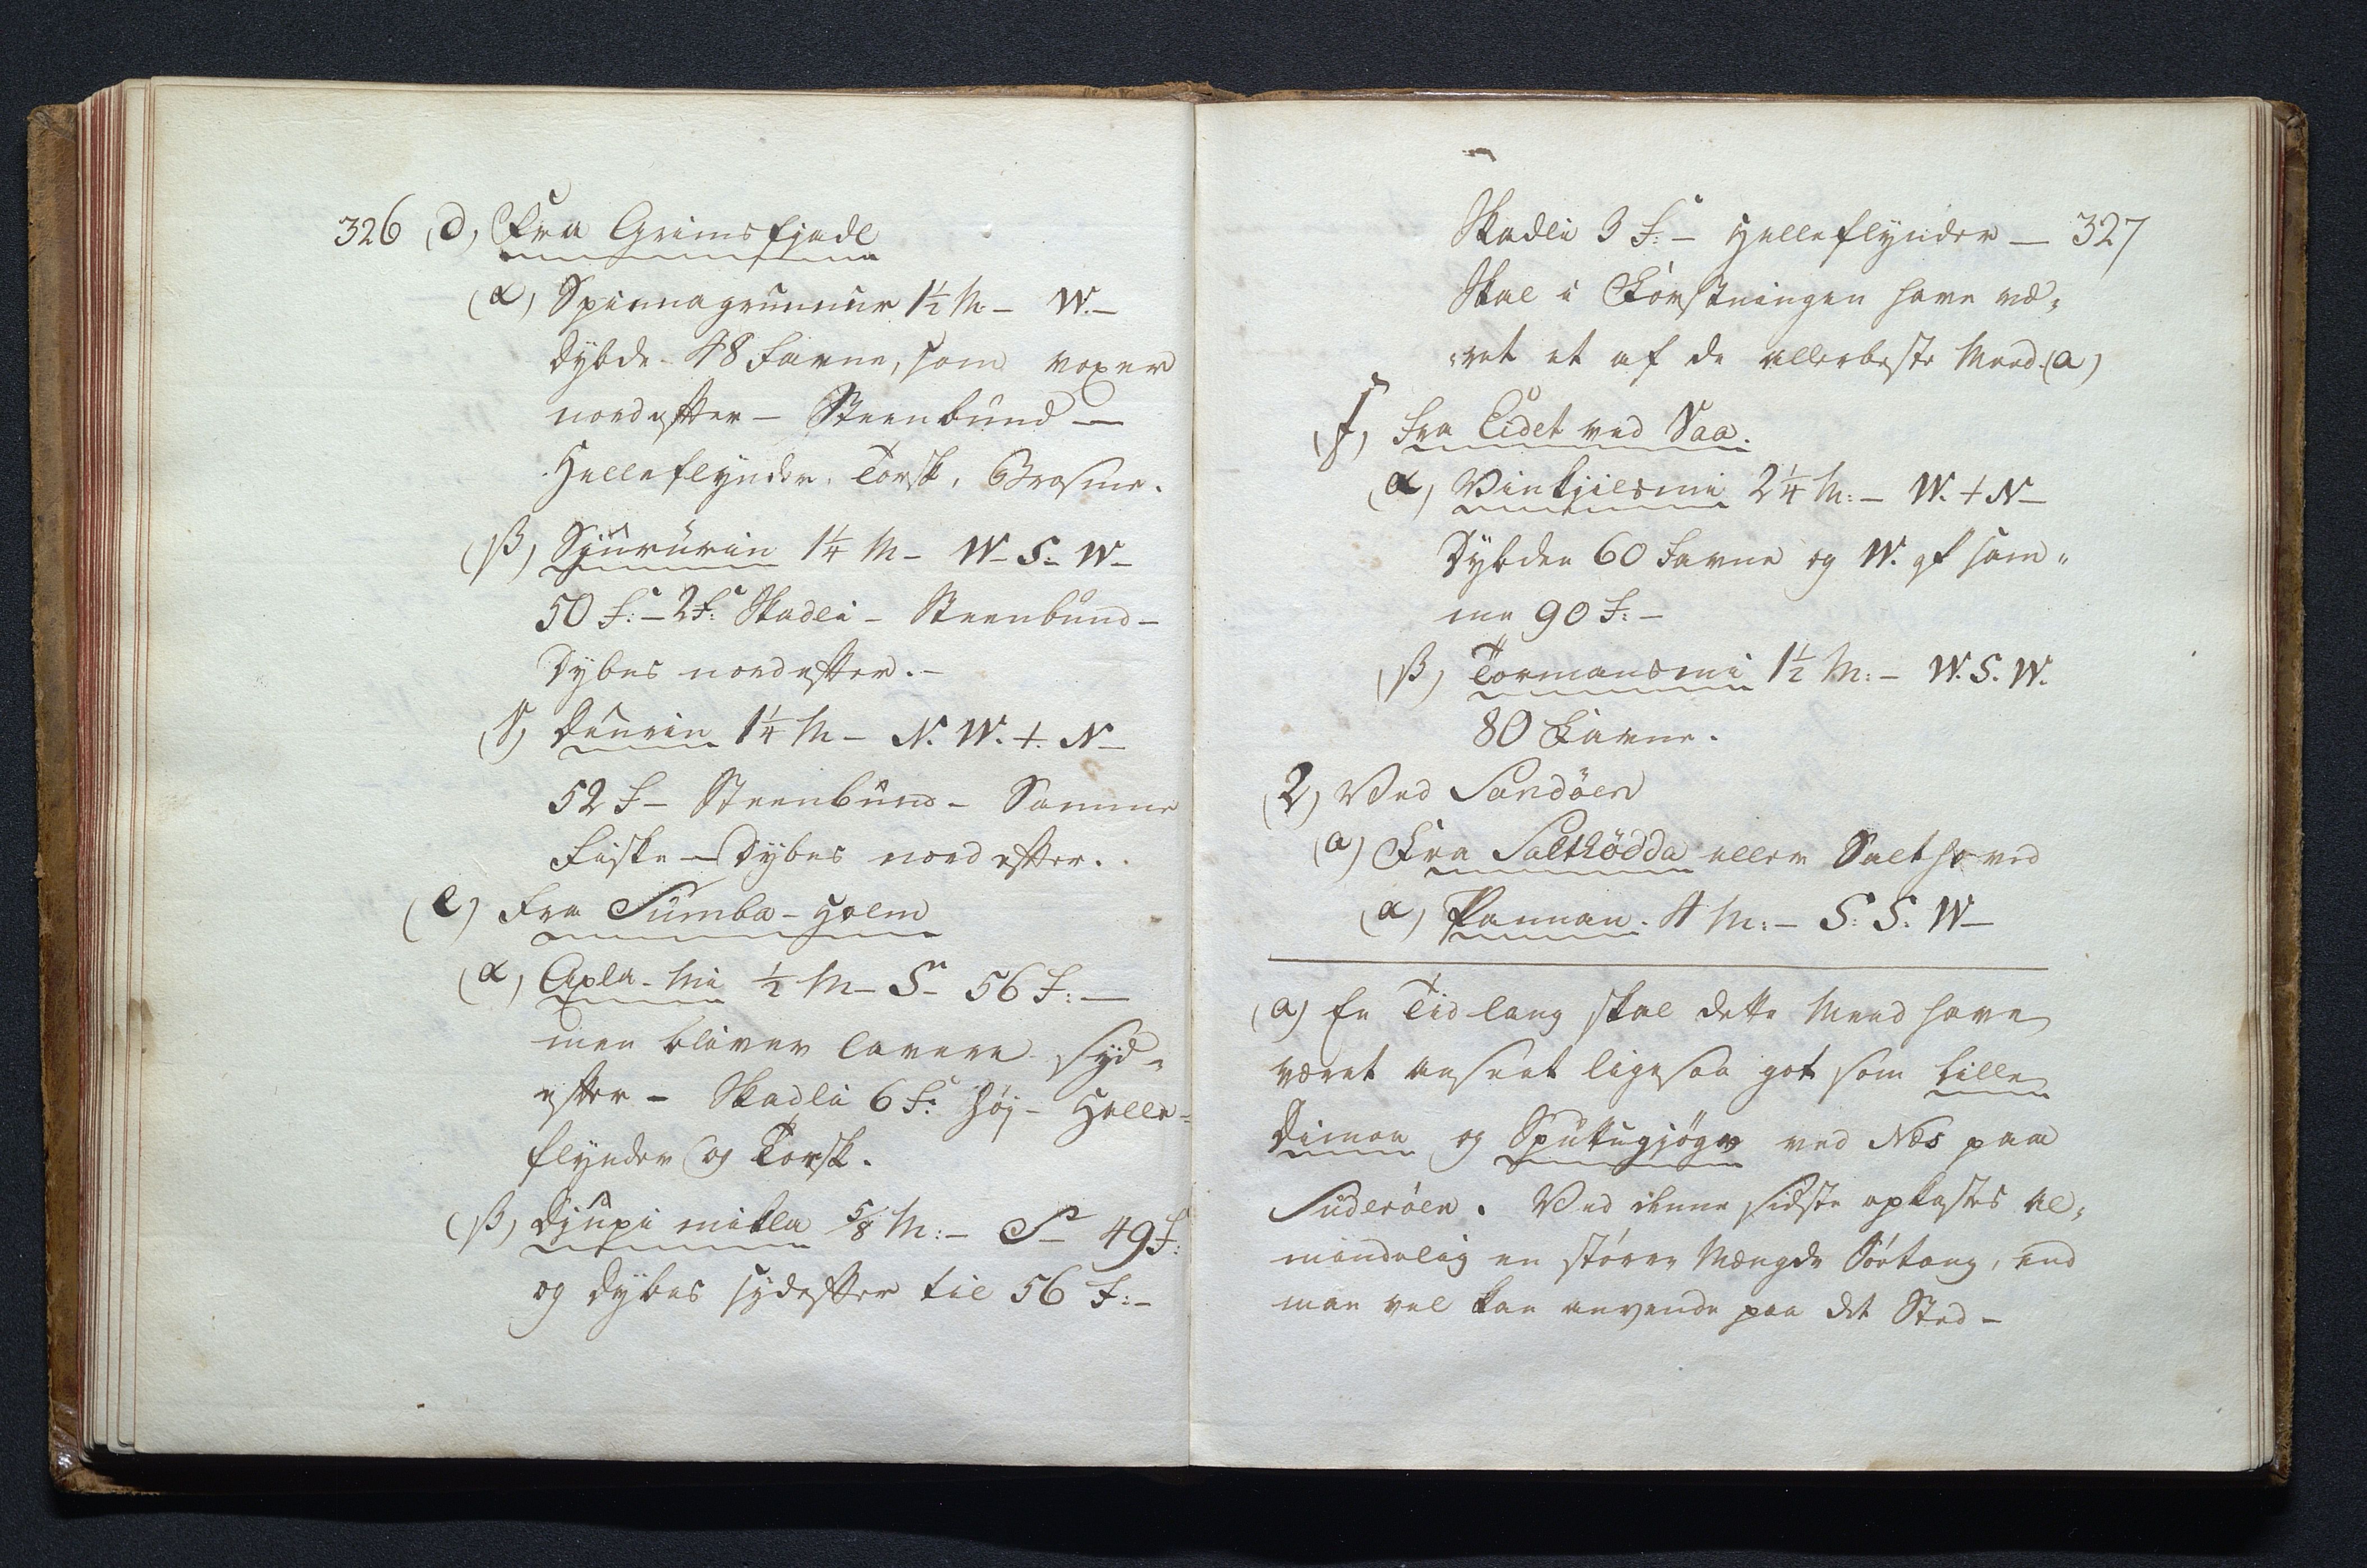 326 (d) Fra Grimsfjadl
(α) Spinnagrunnur 1½ M – W. –
Dybde 48 Favne, som voxer
nordefter – Steenbund –
Helleflynder. Torsk. Brosme.
(β) Sjúrúrin 1¼ M – W – S. W –
50 F: – 2 F: Skadli – Steenbund –
Dybes nordefter. –
(γ) 1¼ M – N. W. + N –
52 F – Steenbund – Samme
Fiske – Dybes nordefter.
(e) Fra Sumba-Holm
(α) Apla-Mi ½ M – S – 56 F: –
men bliver lavere syd-
efter – Skadli 6 F: høj – Helle-
flynder og Torsk.
(β) Djúpi mikla 5/8 M: – S – 49 F:
og dybes sydefter til 56 F: –
Skadli 3 F: – Helleflynder – 327
Skal i Førstningen have væ-
ret et af de allerbeste Meed. (a)
(f) Fra Eidet ved Vaa.
(α) 2¼ M: – W. + N –
Dybden 60 Favne og W. af sam-
me 90 F: –
(β) Tormansmi 1½ M: – W. S. W.
80 Favne.
2) Ved Sandöen
(a) Fra Salthödda eller Salthoved
(α) Pannan. 4 M: – S. S. W –
(a) En Tid lang skal dette Meed have
været anseet ligesaa got som Lille
Dimon og ved Næs paa
Suderöen. Ved denne sidste opkastes al-
mindelig en større Mængde Søetang, end
man vel kan anvende paa det Sted –